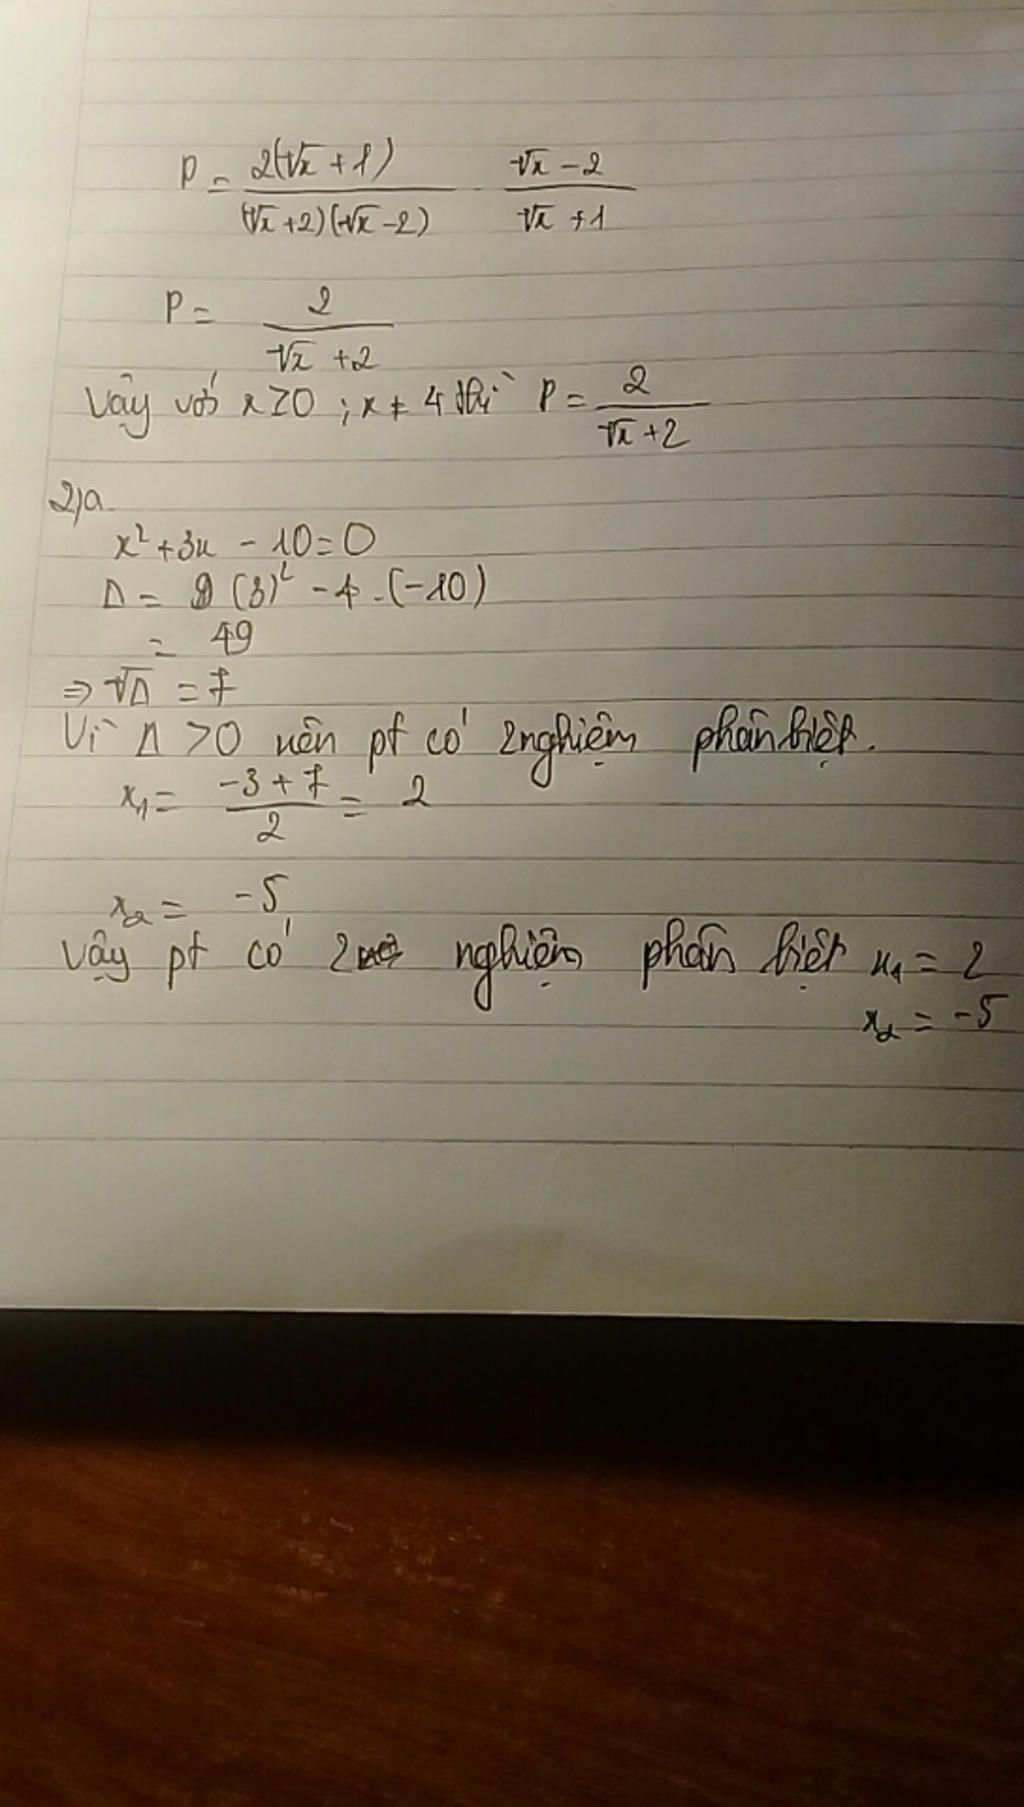 P = 2(√x + 1) / (√x + 2)(√x - 2) · √x - 2 / √x + 1
P = 2 / √x + 2
Vậy với x ≥ 0 ; x ≠ 4 thì P = 2 / √x + 2
2) a.
x² + 3x - 10 = 0
Δ = (3)² - 4 . (-10)
= 49
⇒ √Δ = 7
Vì Δ > 0 nên pt có 2 nghiệm phân biệt.
x₁ = -3 + 7 / 2 = 2
x₂ = -5
Vậy pt có 2 nghiệm phân biệt x₁ = 2
x₂ = -5